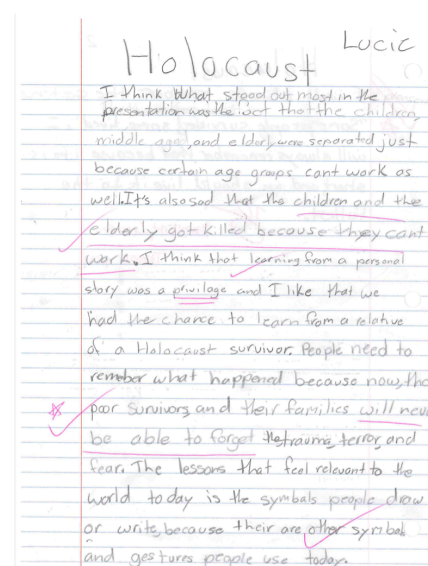 Lucic
Holocaust
I think What stood out most in the
presentation was the fact that the children,
middle aged, and elderly were separated just
because certain age groups cant work as
well. It's also sad that the children and the
elderly got killed because they cant
work. I think that learning from a personal
story was a privilage and I like that we
had the chance to learn from a relative
of a Holocaust survivor. People need to
remember what happened because now, the
poor survivors and their families will nev
be able to forget the trauma, terror, and
fear. The lessons that feel relevant to the
world today is the symbols people draw
or write, because their are other symbols
and gestures people use today.